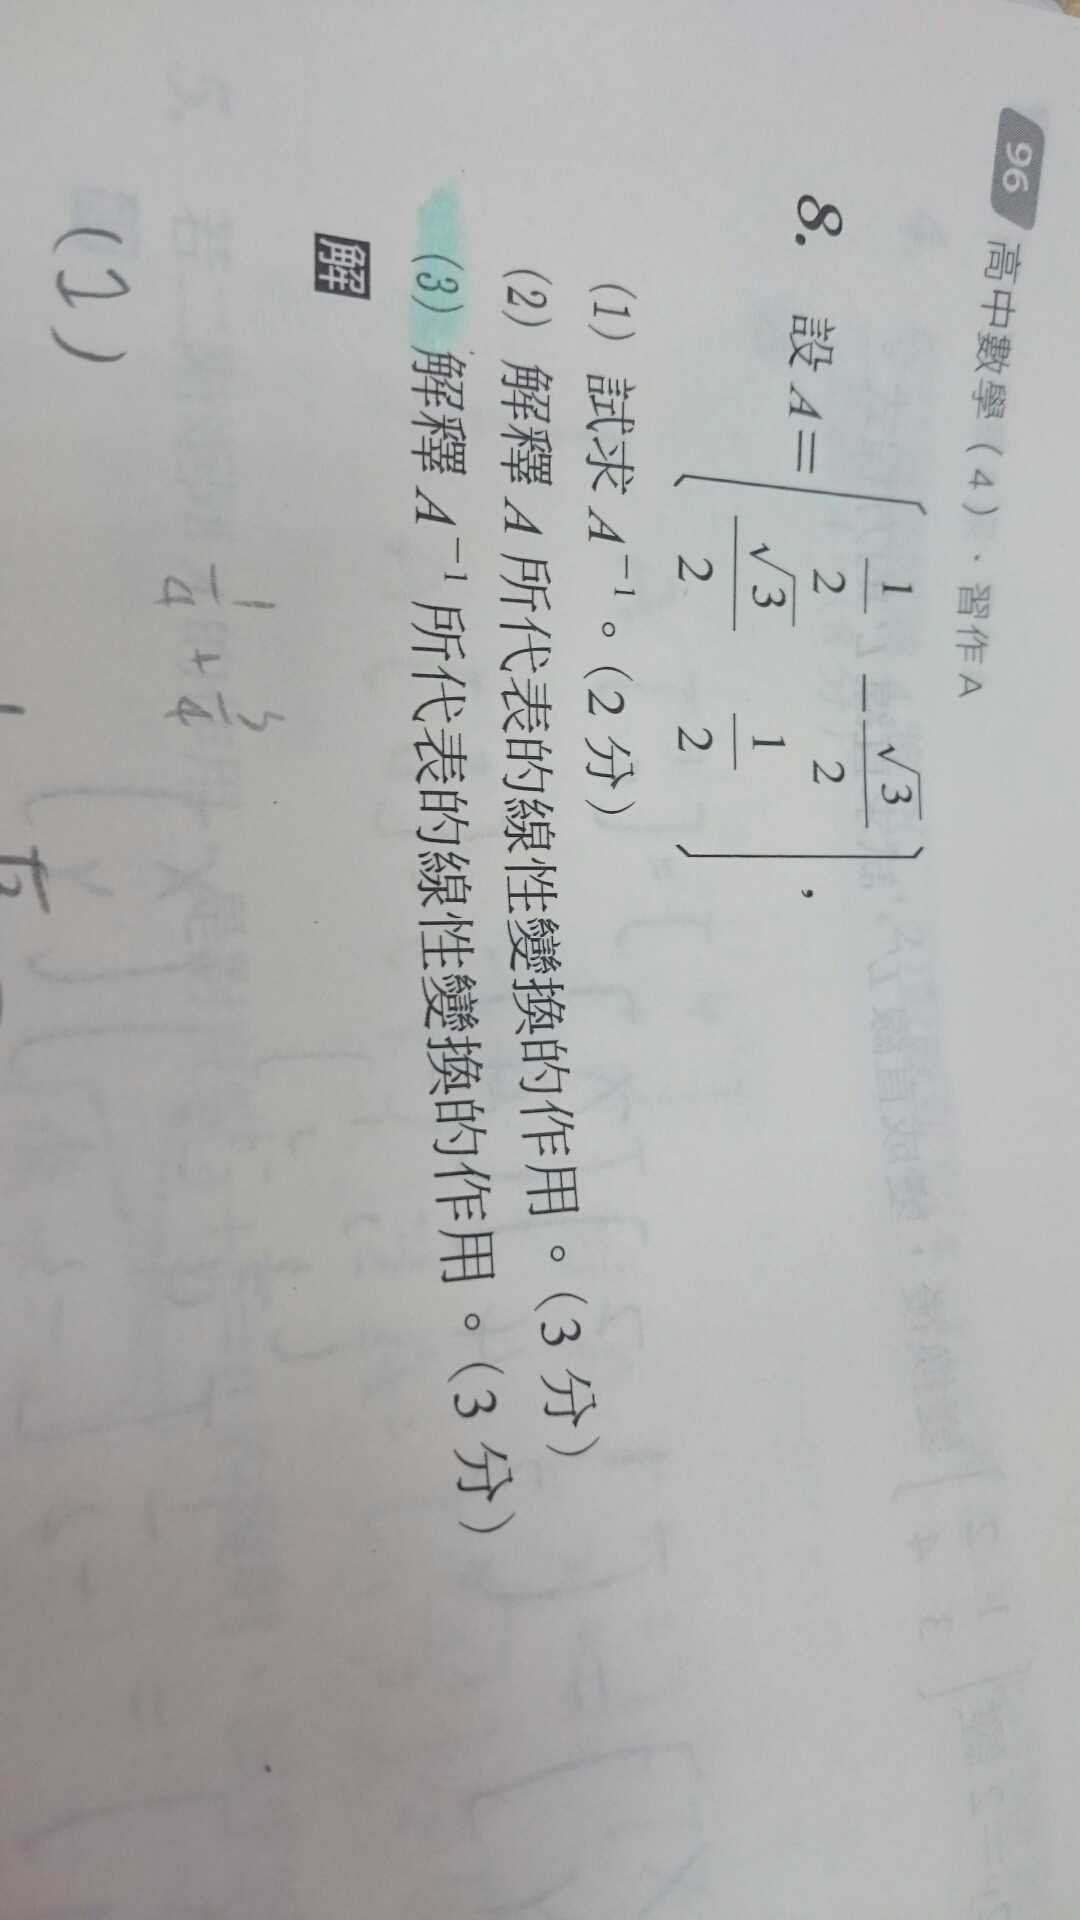 96 高中數學(4)、習作A
8. 設 A = [ 1/2 -√3/2
√3/2 1/2 ],
(1) 試求 A⁻¹。(2 分)
(2) 解釋 A 所代表的線性變換的作用。(3 分)
(3) 解釋 A⁻¹ 所代表的線性變換的作用。(3 分)
解
1/4 + 3/4
(1)